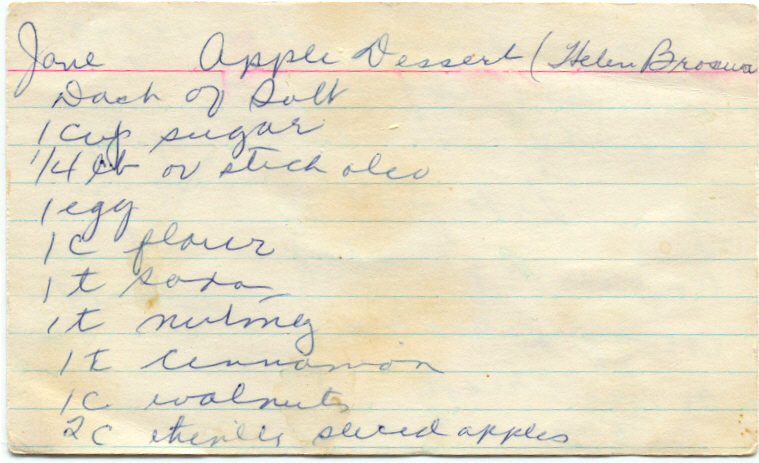 Jane Apple Dessert (Helen
Dash of Salt
1 cup sugar
1/4 lb or stick oleo
1 egg
1 c flour
1 t soda
1t nutmeg
1t cinnamon
1c walnuts
2c thinly sliced apples